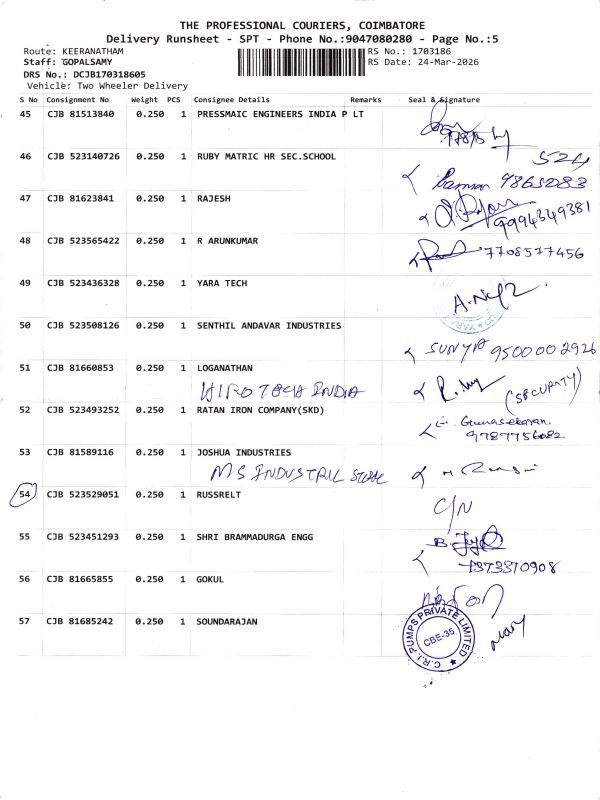 THE PROFESSIONAL COURIERS, COIMBATORE
Delivery Runsheet - SPT - Phone No.:9047080280 - Page No.:5
Route: KEERANATHAM RS No.: 1703186
Staff: GOPALSAMY RS Date: 24-Mar-2026
DRS No.: DCJB170318605
Vehicle: Two Wheeler Delivery
S No Consignment No Weight PCS Consignee Details Remarks Seal & Signature
45 CJB 81513840 0.250 1 PRESSMAIC ENGINEERS INDIA P LT
46 CJB 523140726 0.250 1 RUBY MATRIC HR SEC.SCHOOL 524
9865283
47 CJB 81623841 0.250 1 RAJESH
9994349381
48 CJB 523565422 0.250 1 R ARUNKUMAR
7708577456
49 CJB 523436328 0.250 1 YARA TECH
50 CJB 523508126 0.250 1 SENTHIL ANDAVAR INDUSTRIES
SUNYA 9500002926
51 CJB 81660853 0.250 1 LOGANATHAN
HIRO TECH INDIA (SECURITY)
52 CJB 523493252 0.250 1 RATAN IRON COMPANY(SKD)
Gunasekaran.
9787756082
53 CJB 81589116 0.250 1 JOSHUA INDUSTRIES
MS INDUSTRIL
54 CJB 523529051 0.250 1 RUSSRELT C/N
55 CJB 523451293 0.250 1 SHRI BRAMMADURGA ENGG
7373310908
56 CJB 81665855 0.250 1 GOKUL
57 CJB 81685242 0.250 1 SOUNDARAJAN
C.R.I. PUMPS PRIVATE LIMITED
CBE-35
Mary